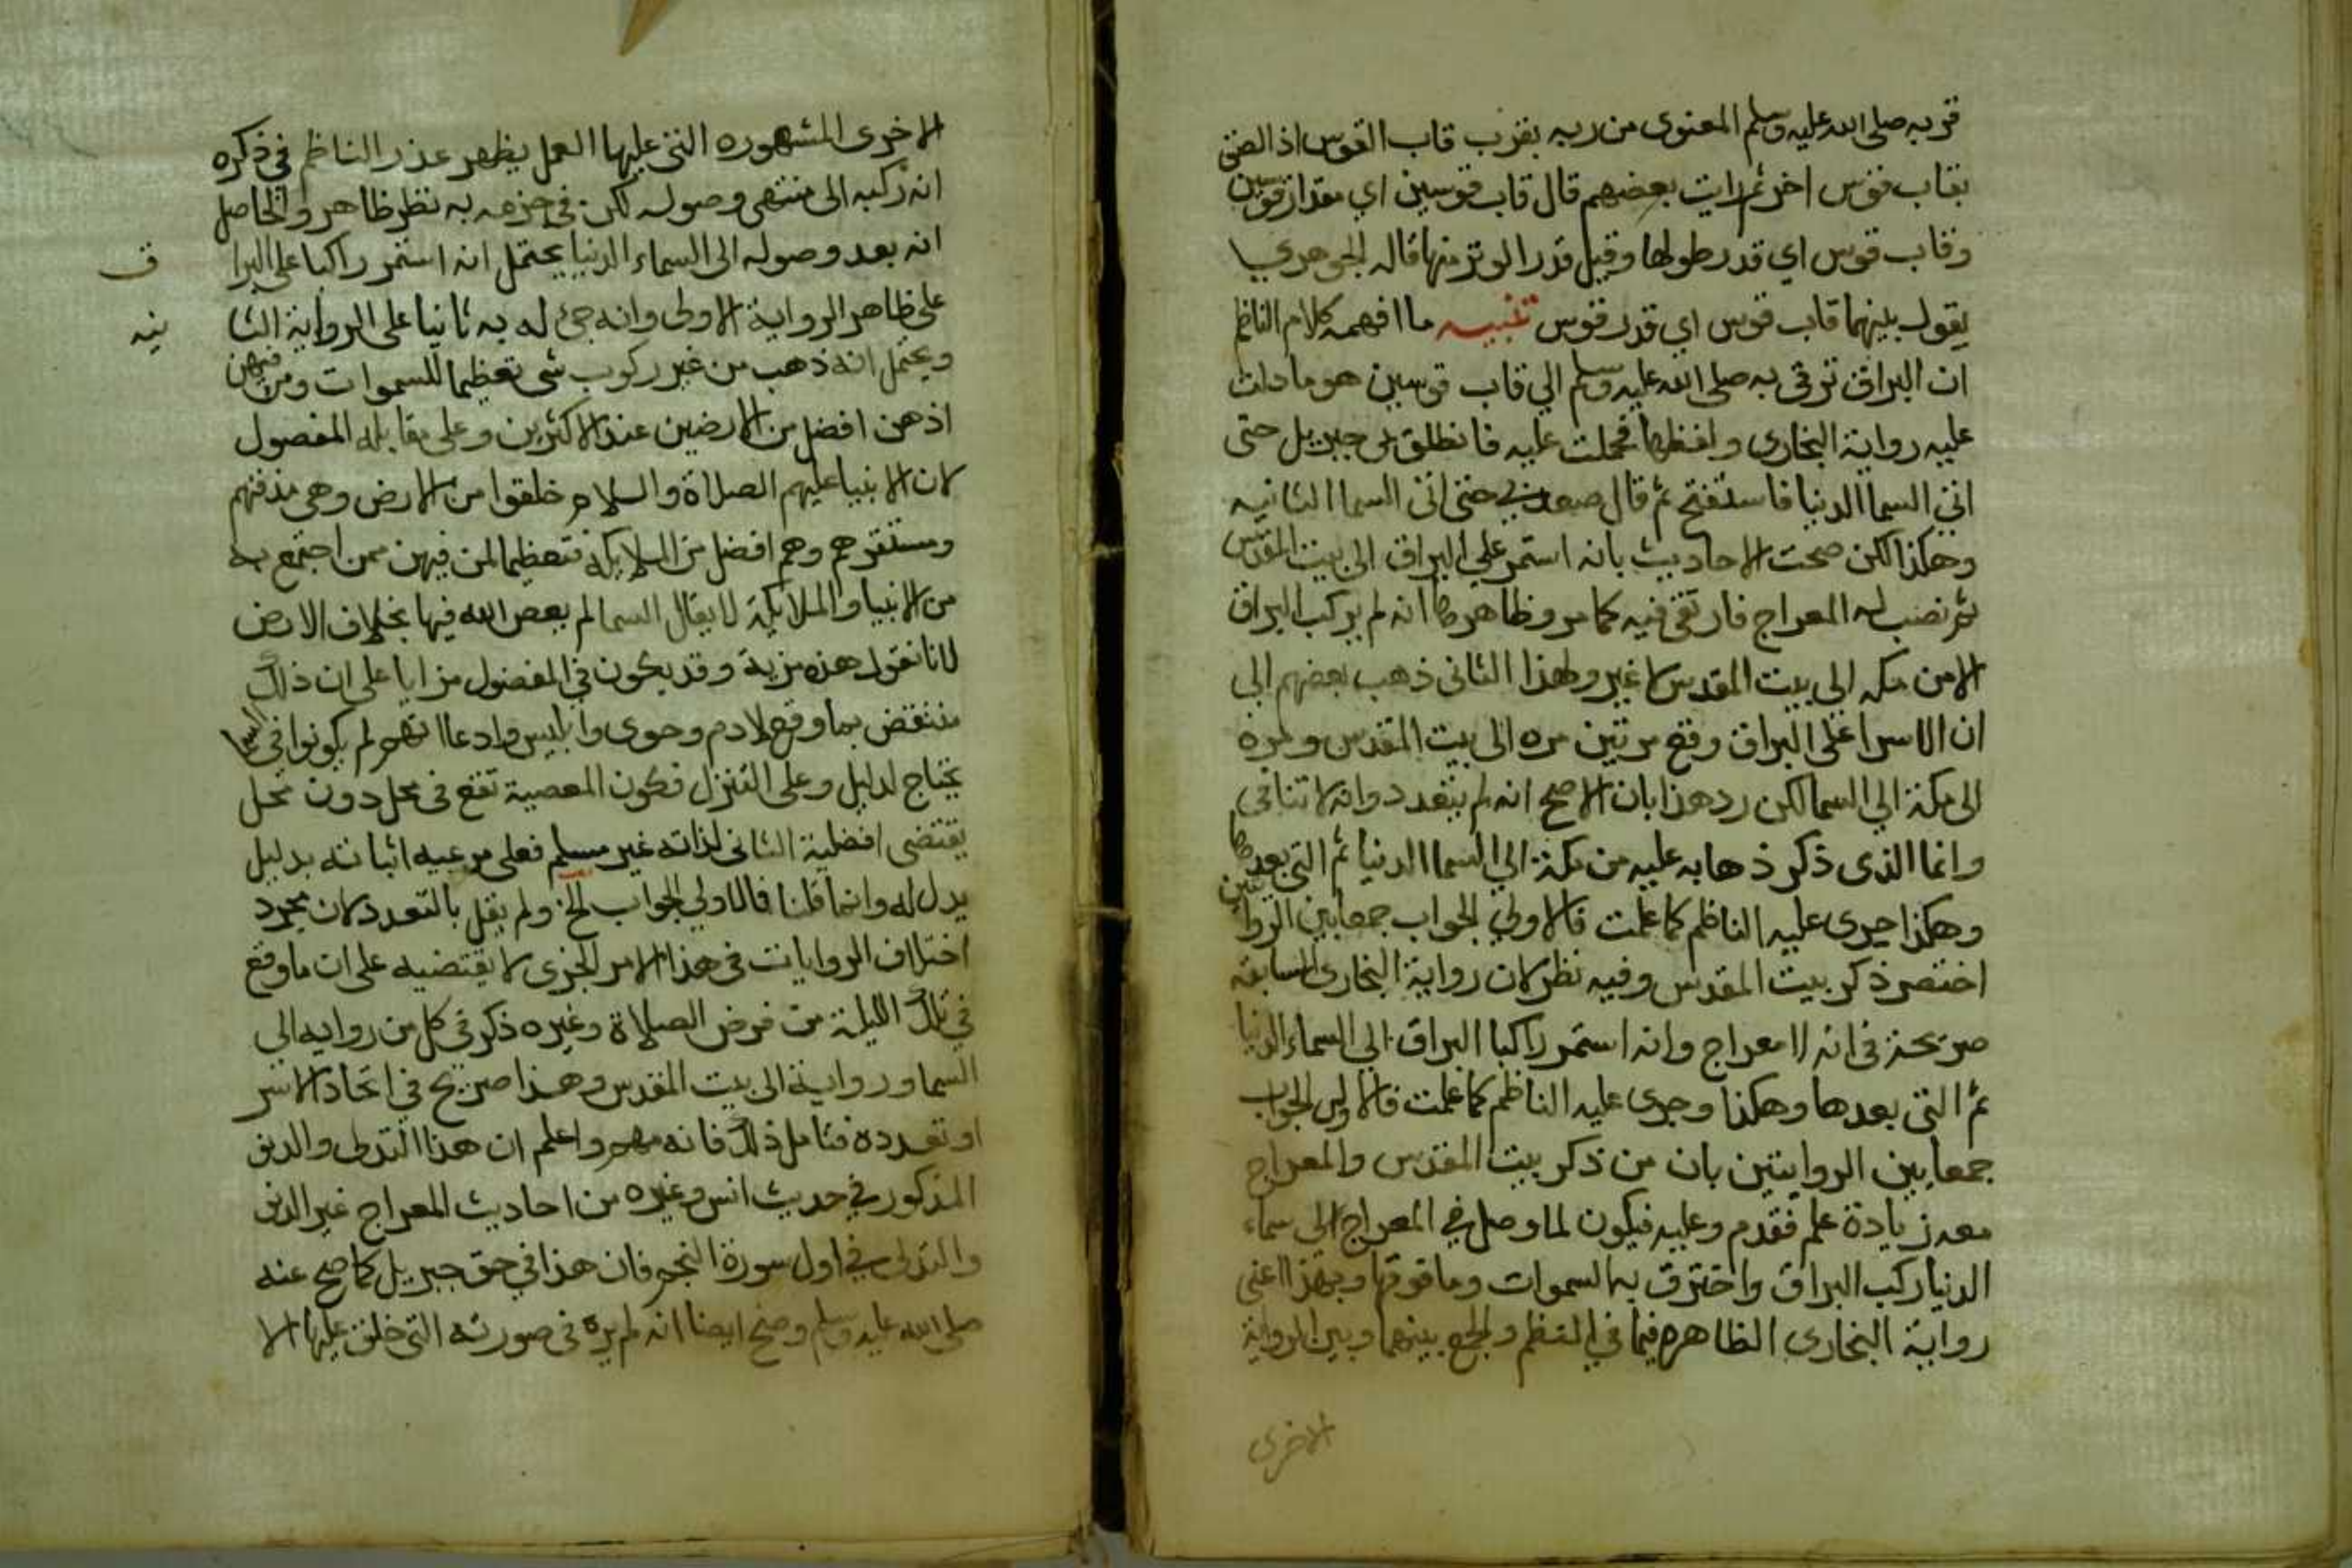 قربه صلى الله عليه وسلم المعنوى من ربه بقرب قاب القوس اذا لصق
بقاب قوس اخر ثم رايت بعضهم قال قاب قوسين اي مقدار قوسين
وقاب قوس اي قدر طولها وقيل قدر الوتر منها قاله الجوهري
يقول بينهما قاب قوس اي قدر قوس تنبيه ما افهمه كلام الناظم
ان البراق ترقى به صلى الله عليه وسلم الي قاب قوسين هو ما دلت
عليه رواية البخارى ولفظها فحملت عليه فانطلق بى جبريل حتى
اتى السما الدنيا فاستفتح ثم قال صعد بي حتى اتى السما الثانيه
وهكذا لكن صحت الاحاديث بانه استمر علي البراق الى بيت المقدس
ثم نصب له المعراج فارتقى فيه كما مر وظاهرها انه لم يركب البراق
الا من مكه الي بيت المقدس لا غير ولهذا الثانى ذهب بعضهم الي
ان الاسرا على البراق وقع مرتين مره الى بيت المقدس ومره
الى مكة الي السما لكن رد هذا بان الاصح انه لم يتعدد وانه لا تنافى
وانما الذى ذكر ذهابه عليه من مكة الي السما الدنيا ثم التى بعدها
وهكذا جرى عليه الناظم كما علمت فالاولي الجواب جمعا بين الروايتين
اختصر ذكر بيت المقدس وفيه نظر لان رواية البخارى السابقه
صريحة فى انه لا معراج وانه استمر راكبا البراق الي السماء الدنيا
ثم التى بعدها وهكذا وجرى عليه الناظم كما علمت فالاولى الجواب
جمعا بين الروايتين بان من ذكر بيت المقدس والمعراج
معه زيادة علم فقدم وعليه فيكون لما وصل في المعراج الى سماء
الدنيا ركب البراق واخترق به السموات وما فوقها وبهذا اعنى
رواية البخارى الظاهره فيما في النظم والجمع بينهما وبين الرواية
الاخرى
الاخرى المشهوره التى عليها العمل يظهر عذر الناظم في ذكره
انه ركبه الى منتهى وصوله لكن في جزمه به نظر ظاهر والحاصل
انه بعد وصوله الى السماء الدنيا يحتمل انه استمر راكبا على البرا
ق
على ظاهر الرواية الاولى وانه جئ له به ثانيا على الرواية الثا
نيه
ويحتمل انه ذهب من غير ركوب شى تعظيما للسموات ومن فيهن
اذ هن افضل من الارضين عند الاكثرين وعلى مقابله المفصول
لان الانبيا عليهم الصلاة والسلام خلقوا من الارض وهى مدفنهم
ومستقرهم وهم افضل من الملايكة فتعظيما لمن فيهن ممن اجتمع به
من الانبيا والملايكة لا يقال السما لم يعص الله فيها بخلاف الارض
لانا نقول هذه مزية وقد يكون في المفضول مزايا على ان ذلك
منتقض بما وقع لادم وحوى وابليس وادعا انهم لم يكونوا فى السما
يحتاج لدليل وعلى التنزل فكون المعصية تقع فى محل دون محل
يقتضى افضلية الثانى لذاته غير مسلم فعلى مدعيه اثباته بدليل
يدل له وانما قلنا فالاولي الجواب الخ ولم يقل بالتعدد لان مجرد
اختلاف الروايات فى هذا الامر الجزى لا يقتضيه على ان ما وقع
في تلك الليلة من فرض الصلاة وغيره ذكر فى كل من روايه الي
السما ورواية الى بيت المقدس وهذا صريح في اتحاد الاسر
او تعدده فتامل ذلك فانه مهم واعلم ان هذا التدلى والدنو
المذكور في حديث انس وغيره من احاديث المعراج غير الدنو
والتدلى في اول سورة النجم فان هذا في حق جبريل كما صح عنه
صلى الله عليه وسلم وصح ايضا انه لم يره فى صورته التى خلق عليها الا